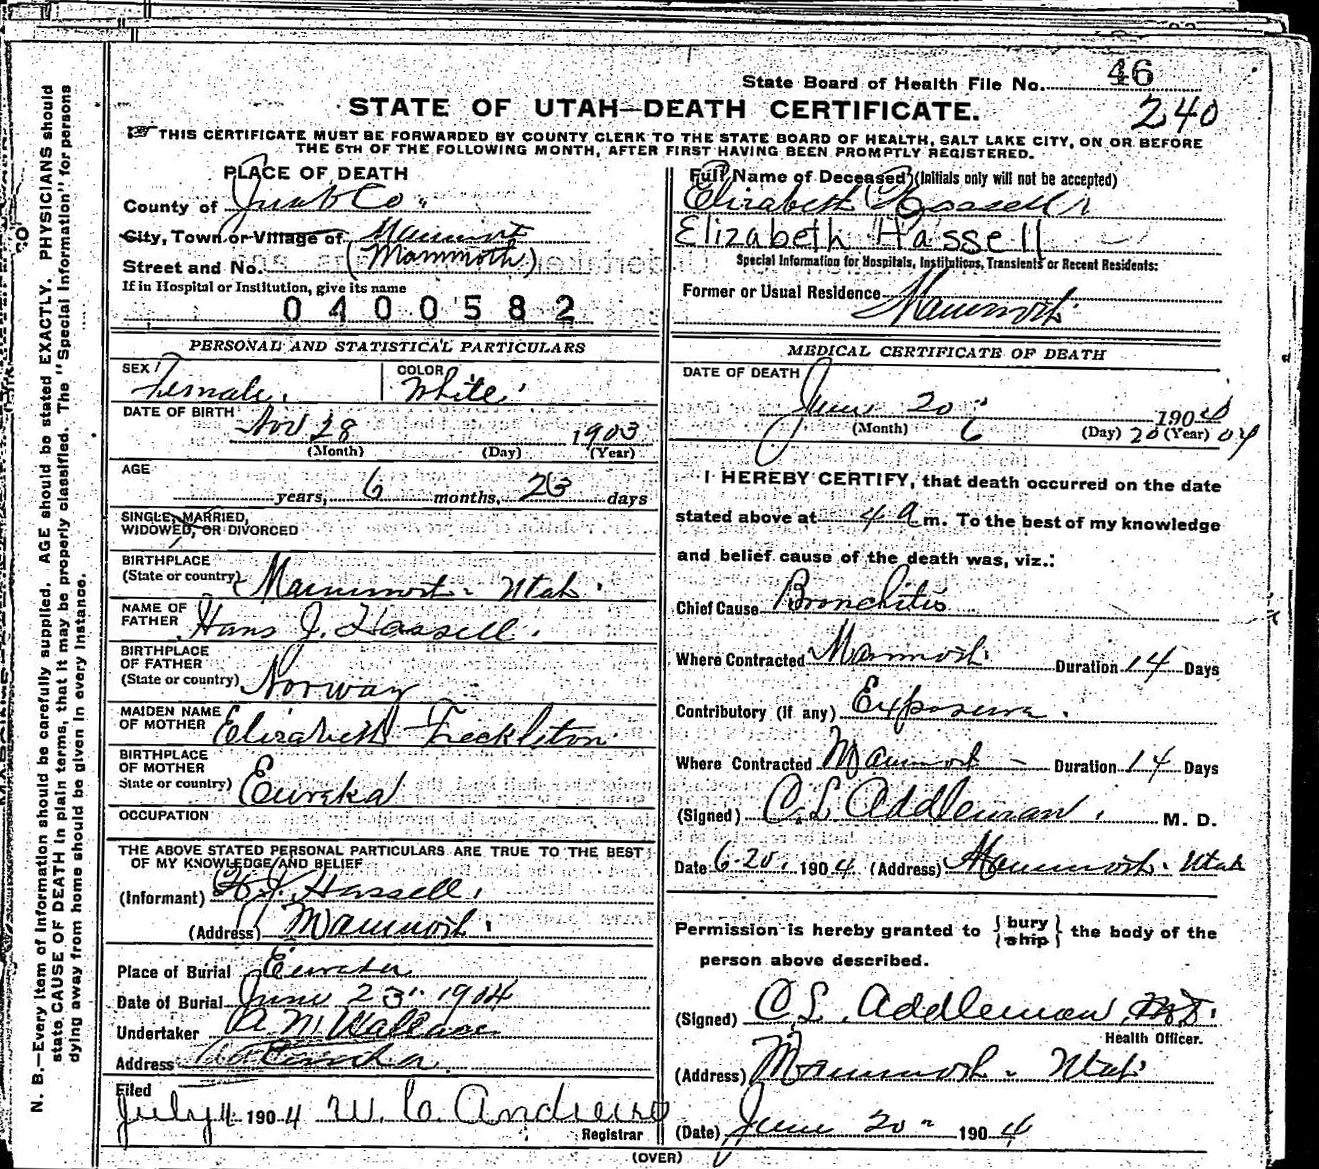 State Board of Health File No. 46
240
STATE OF UTAH—DEATH CERTIFICATE.
THIS CERTIFICATE MUST BE FORWARDED BY COUNTY CLERK TO THE STATE BOARD OF HEALTH, SALT LAKE CITY, ON OR BEFORE
THE 5TH OF THE FOLLOWING MONTH, AFTER FIRST HAVING BEEN PROMPTLY REGISTERED.
PLACE OF DEATH
County of Juab Co.
City, Town or Village of Mammoth
(Mammoth)
Street and No.
If in Hospital or Institution, give its name
0400582
Full Name of Deceased (Initials only will not be accepted)
Elizabeth Hassell
Elizabeth Hassell
Special Information for Hospitals, Institutions, Transients or Recent Residents:
Former or Usual Residence Mammoth
PERSONAL AND STATISTICAL PARTICULARS
SEX Female. COLOR White
DATE OF BIRTH Nov 28 1903
(Month) (Day) (Year)
AGE
years, 6 months, 23 days
SINGLE, MARRIED,
WIDOWED, OR DIVORCED
BIRTHPLACE
(State or country) Mammoth Utah.
NAME OF
FATHER Hans J. Hassell.
BIRTHPLACE
OF FATHER
(State or country) Norway
MAIDEN NAME
OF MOTHER Elizabeth Freckleton
BIRTHPLACE
OF MOTHER
State or country) Eureka
OCCUPATION
THE ABOVE STATED PERSONAL PARTICULARS ARE TRUE TO THE BEST
OF MY KNOWLEDGE AND BELIEF
(Informant) H. J. Hassell.
(Address) Mammoth.
Place of Burial Eureka
Date of Burial June 23" 1904
Undertaker A. N. Wallace
Address Eureka
Filed
July 4 1904 W. C. Andrews
Registrar
MEDICAL CERTIFICATE OF DEATH
DATE OF DEATH
June 20" 1904
(Month) 6 (Day) 20 (Year) 04
I HEREBY CERTIFY, that death occurred on the date
stated above at 4 a m. To the best of my knowledge
and belief cause of the death was, viz.:
Chief Cause Bronchitis
Where Contracted Mammoth Duration 14 Days
Contributory (if any) Exposure.
Where Contracted Mammoth Duration 14 Days
(Signed) C. L. Addleman. M. D.
Date 6-20. 1904 (Address) Mammoth. Utah
Permission is hereby granted to {bury
ship} the body of the
person above described.
(Signed) C. L. Addleman M.D.
Health Officer.
(Address) Mammoth. Utah
(Date) June 20" 1904
(OVER)
N. B.—Every item of Information should be carefully supplied. AGE should be stated EXACTLY. PHYSICIANS should
state CAUSE OF DEATH in plain terms, that it may be properly classified. The "Special Information" for persons
dying away from home should be given in every instance.